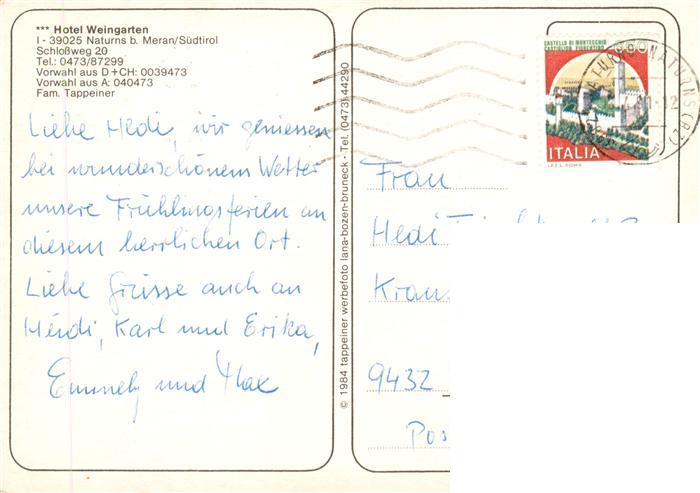 *** Hotel Weingarten
I - 39025 Naturns b. Meran/Südtirol
Schloßweg 20
Tel.: 0473/87299
Vorwahl aus D+CH: 0039473
Vorwahl aus A: 040473
Fam. Tappeiner
Liebe Hedi, wir geniessen
bei wunderschönem Wetter
unsere Frühlingsferien an
diesem herrlichen Ort.
Liebe Grüsse auch an
Heidi, Karl und Erika,
Emmely und Max
© 1984 tappeiner werbefoto lana-bozen-bruneck - Tel. (0473) 44290
CASTELLO DI MONTECCHIO
CASTIGLION FIORENTINO
ITALIA
I.P.Z.S. ROMA
Frau
Hedi
9432